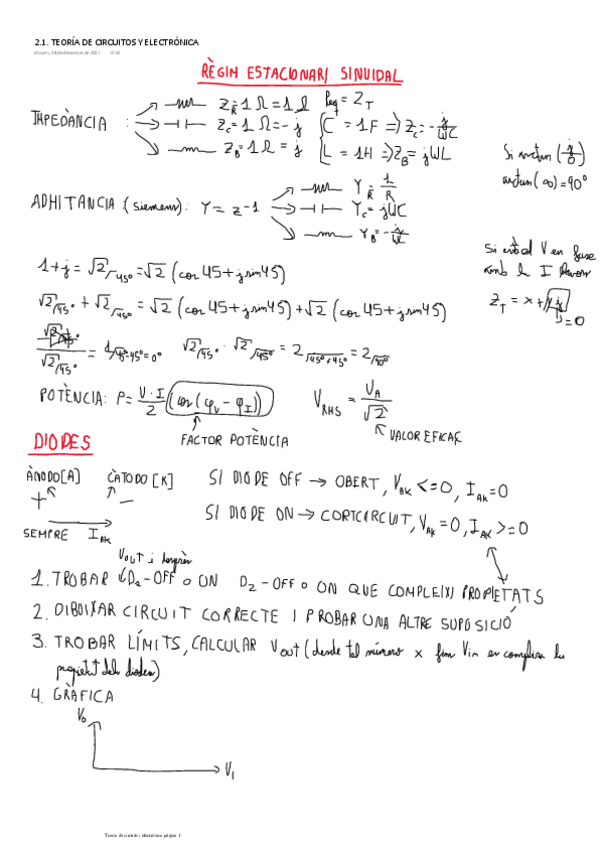 2.1. TEORÍA DE CIRCUITOS Y ELECTRÓNICA
RÈGIM ESTACIONARI SINUIDAL
IMPEDÀNCIA : Z_R = 1 Ω = 1 Ω Req = Z_T
Z_C = 1 Ω = -j C = 1F => Z_C = -j/WC
Z_B = 1 Ω = j L = 1H => Z_B = jWL
Si arctan (j/0)
arctan (∞) = 90º
ADMITANCIA (siemens): Y = Z^-1 Y_R = 1/R
Y_C = jWC
Y_B = -j/WL
Si està el V en fase
amb la I
Z_T = x + yj
y = 0
1+j = √2 /45º = √2 (cos 45 + j sin 45)
√2 /45º + √2 /45º = √2 (cos 45 + j sin 45) + √2 (cos 45 + j sin 45)
√2 /45º / √2 /45º = 1 /45º-45º = 0º √2 /45º · √2 /45º = 2 /45º+45º = 2 /90º
POTÈNCIA: P = V·I/2 (cos (φ_V - φ_I)) V_RMS = V_A/√2
FACTOR POTÈNCIA
VALOR EFICAÇ
DIODES
ÀNODO [A] CÀTODO [K] SI DIODE OFF → OBERT, V_AK <= 0, I_AK = 0
+ -
SI DIODE ON → CORTCIRCUIT, V_AK = 0, I_AK >= 0
SEMPRE I_AK
Vout i després
1. TROBAR D2-OFF o ON D2-OFF o ON QUE COMPLEIXI PROPIETATS
2. DIBUIXAR CIRCUIT CORRECTE I PROBAR UNA ALTRE SUPOSICIÓ
3. TROBAR LÍMITS, CALCULAR Vout (desde tal número x fins Vin es compleixen la
propietat del diodes)
4. GRÀFICA
V0
VI
Teoria de circuits i electrònica página 1